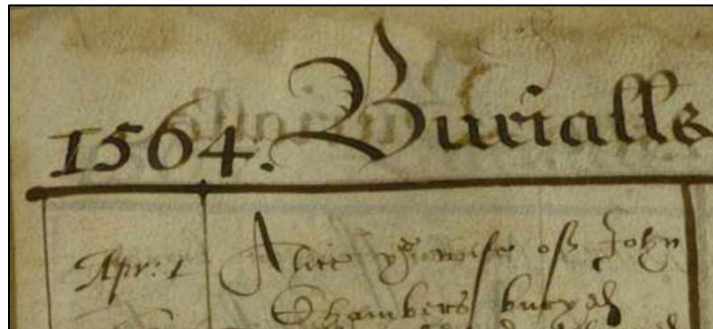 1564. Burialls
Apr: 1 Alice ye wife of John
Chambers buryed